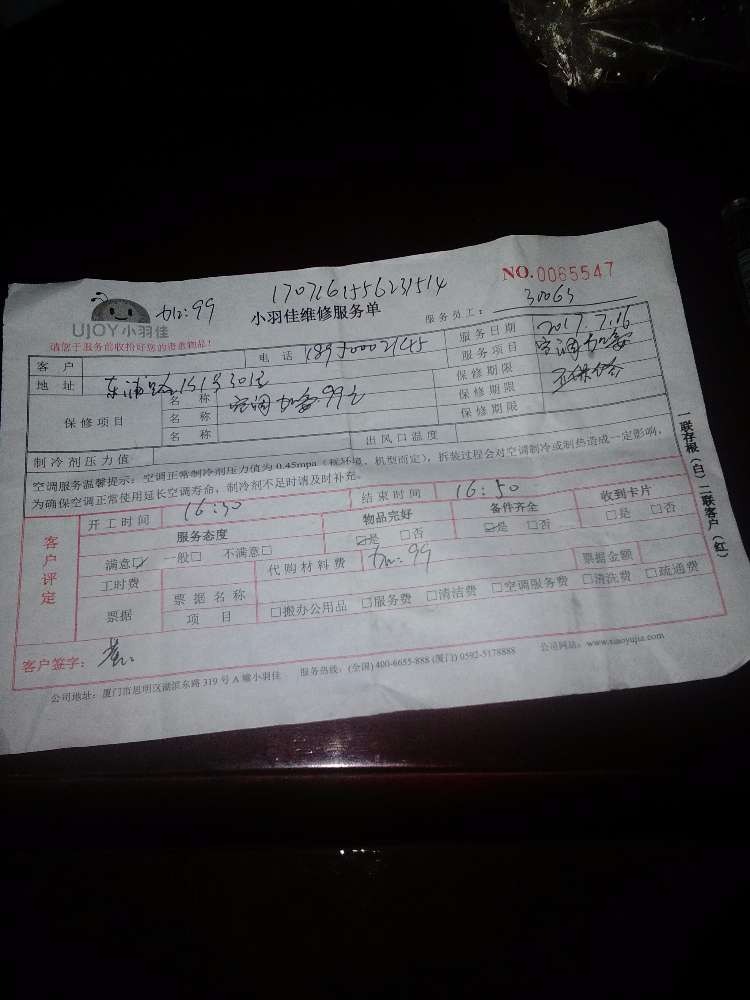 加:99
1707161556231514
NO.0065547
UJOY小羽佳
小羽佳维修服务单
服务员工: 30065
请您于服务前收拾好您的贵重物品!
客户
电话
服务日期 2017.7.16
地址 东浦路151号301室
服务项目 空调加氨
保修项目
名称 空调加氨99元
保修期限
名称
保修期限
名称
保修期限
制冷剂压力值
出风口温度
空调服务温馨提示:空调正常制冷剂压力值为0.45mpa(视环境、机型而定),拆装过程会对空调制冷或制热造成一定影响,
为确保空调正常使用延长空调寿命,制冷剂不足时请及时补充。
客户评定
开工时间 16:30
结束时间 16:50
服务态度
物品完好
备件齐全
收到卡片
满意☑ 一般□ 不满意□
☑是 □否
☑是 □否
□是 □否
工时费
代购材料费 加:99
票据
票据名称
票据金额
项目
□搬办公用品 □服务费 □清洁费 □空调服务费 □清洗费 □疏通费
客户签字:
公司地址:厦门市思明区湖滨东路319号A幢小羽佳 服务热线:(全国)400-6655-888 (厦门)0592-5178888 公司网站:www.xiaoyujia.com
一联存根(白)二联客户(红)